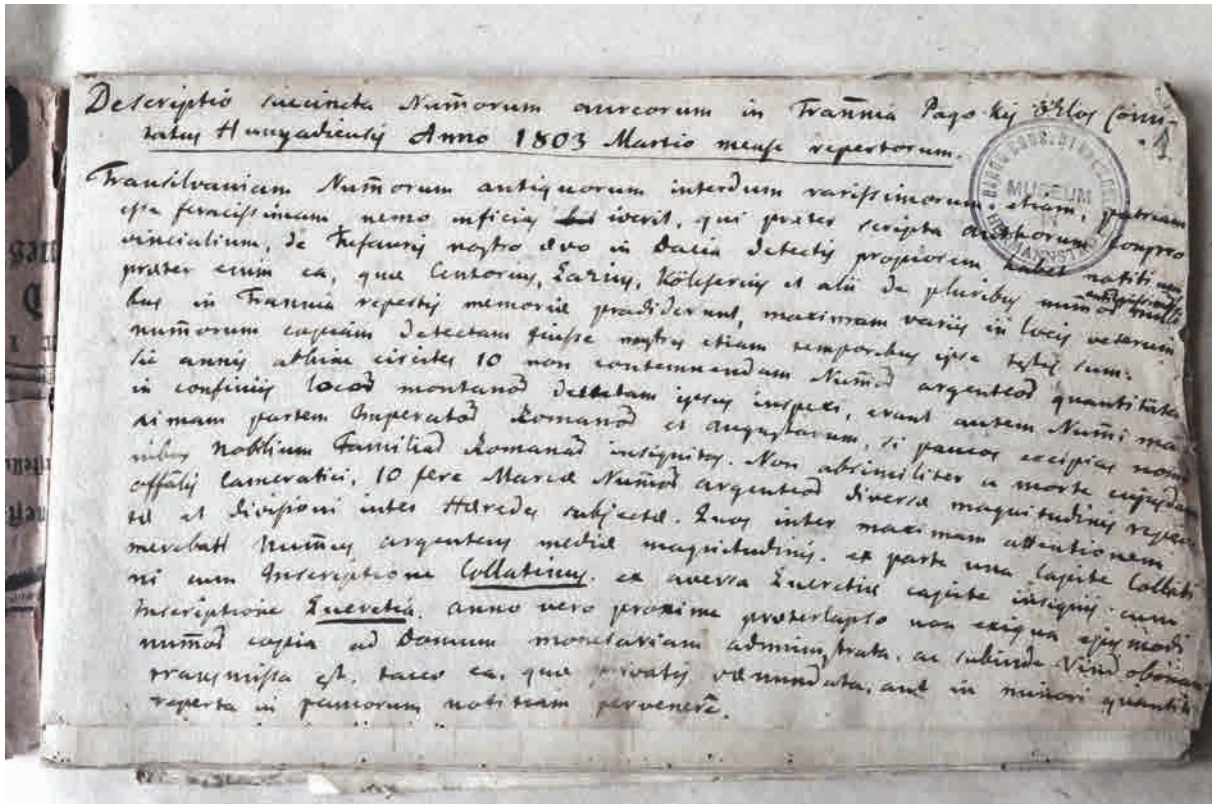 Descriptio succincta Num̄orum aureorum in Tran̄nia Pago Kis Oklos Comi-
tatus Hunyadiensis Anno 1803 Martio mense repertorum.
1
MUSEUM
HERMANNSTADT
Transilvaniam Num̄orum antiquorum interdum rarissimorum etiam, patriam
esse feracissimam, nemo inficias iverit, qui præter scripta Authorum Compro
vincialium, de Thesauris nostro ævo in Dacia detectis propiorem habet notitiam
præter enim ea, quæ Centorius, Lazius, Köleserius et alii de pluribus num̄os
bus in Tran̄nia repertis memoriæ prodiderunt, maximam variis in locis veterum
num̄orum copiam detectam fuisse nostris etiam temporibus ipse testis sum.
Sic annis abhinc circiter 10 non contemnendam Num̄os argenteos quantitatē
in confiniis locos montanos detectam ipsus inspexi, erant autem Num̄i ma
ximam partem Imperatos Romanos et Augustarum, si paucos excipias nomi
nibus nobilium Familias Romanas insignitos. Non absimiliter a morte cujusdam
offālis Cameratici, 10 fere Marcæ Num̄os argenteos diversæ magnitudinis reper
tæ et divisioni inter Hæredes subjectæ. Quos inter maximam attentionem
merebat Num̄us argenteus mediæ magnitudinis, ex parte una capite Collati
ni cum Inscriptione Collatinus, ex aversa Lucretiæ capite insignis cum
Inscriptione Lucretia. anno vero proxime præterlapso non exigua ejusmodi
num̄os copia ad Domum monetariam administrata, ac subinde
transmissa est, taceo ea, quæ privatis vænundata, aut in minori quantita
reperta in paucorum notitiam pervenere.